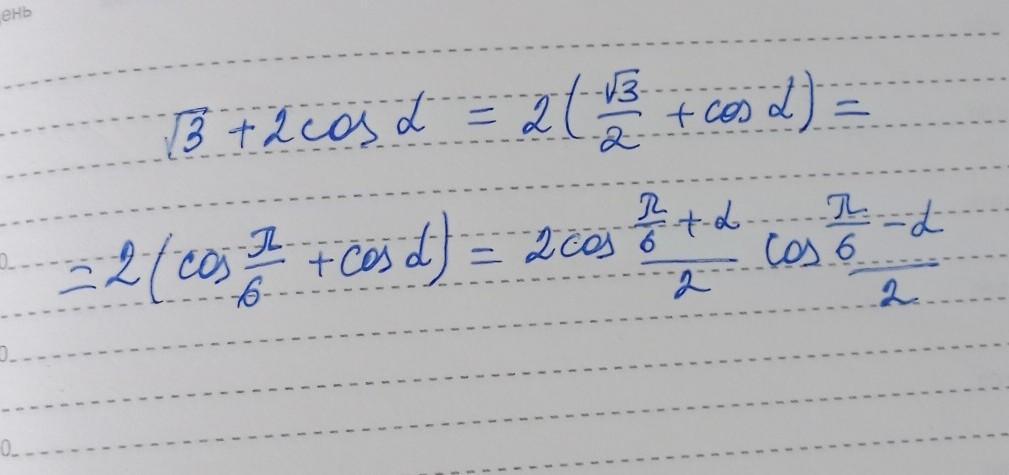 ень
√3 + 2cos α = 2(√3/2 + cos α) =
= 2(cos π/6 + cos α) = 2cos (π/6 + α)/2 cos (π/6 - α)/2
0
0
0